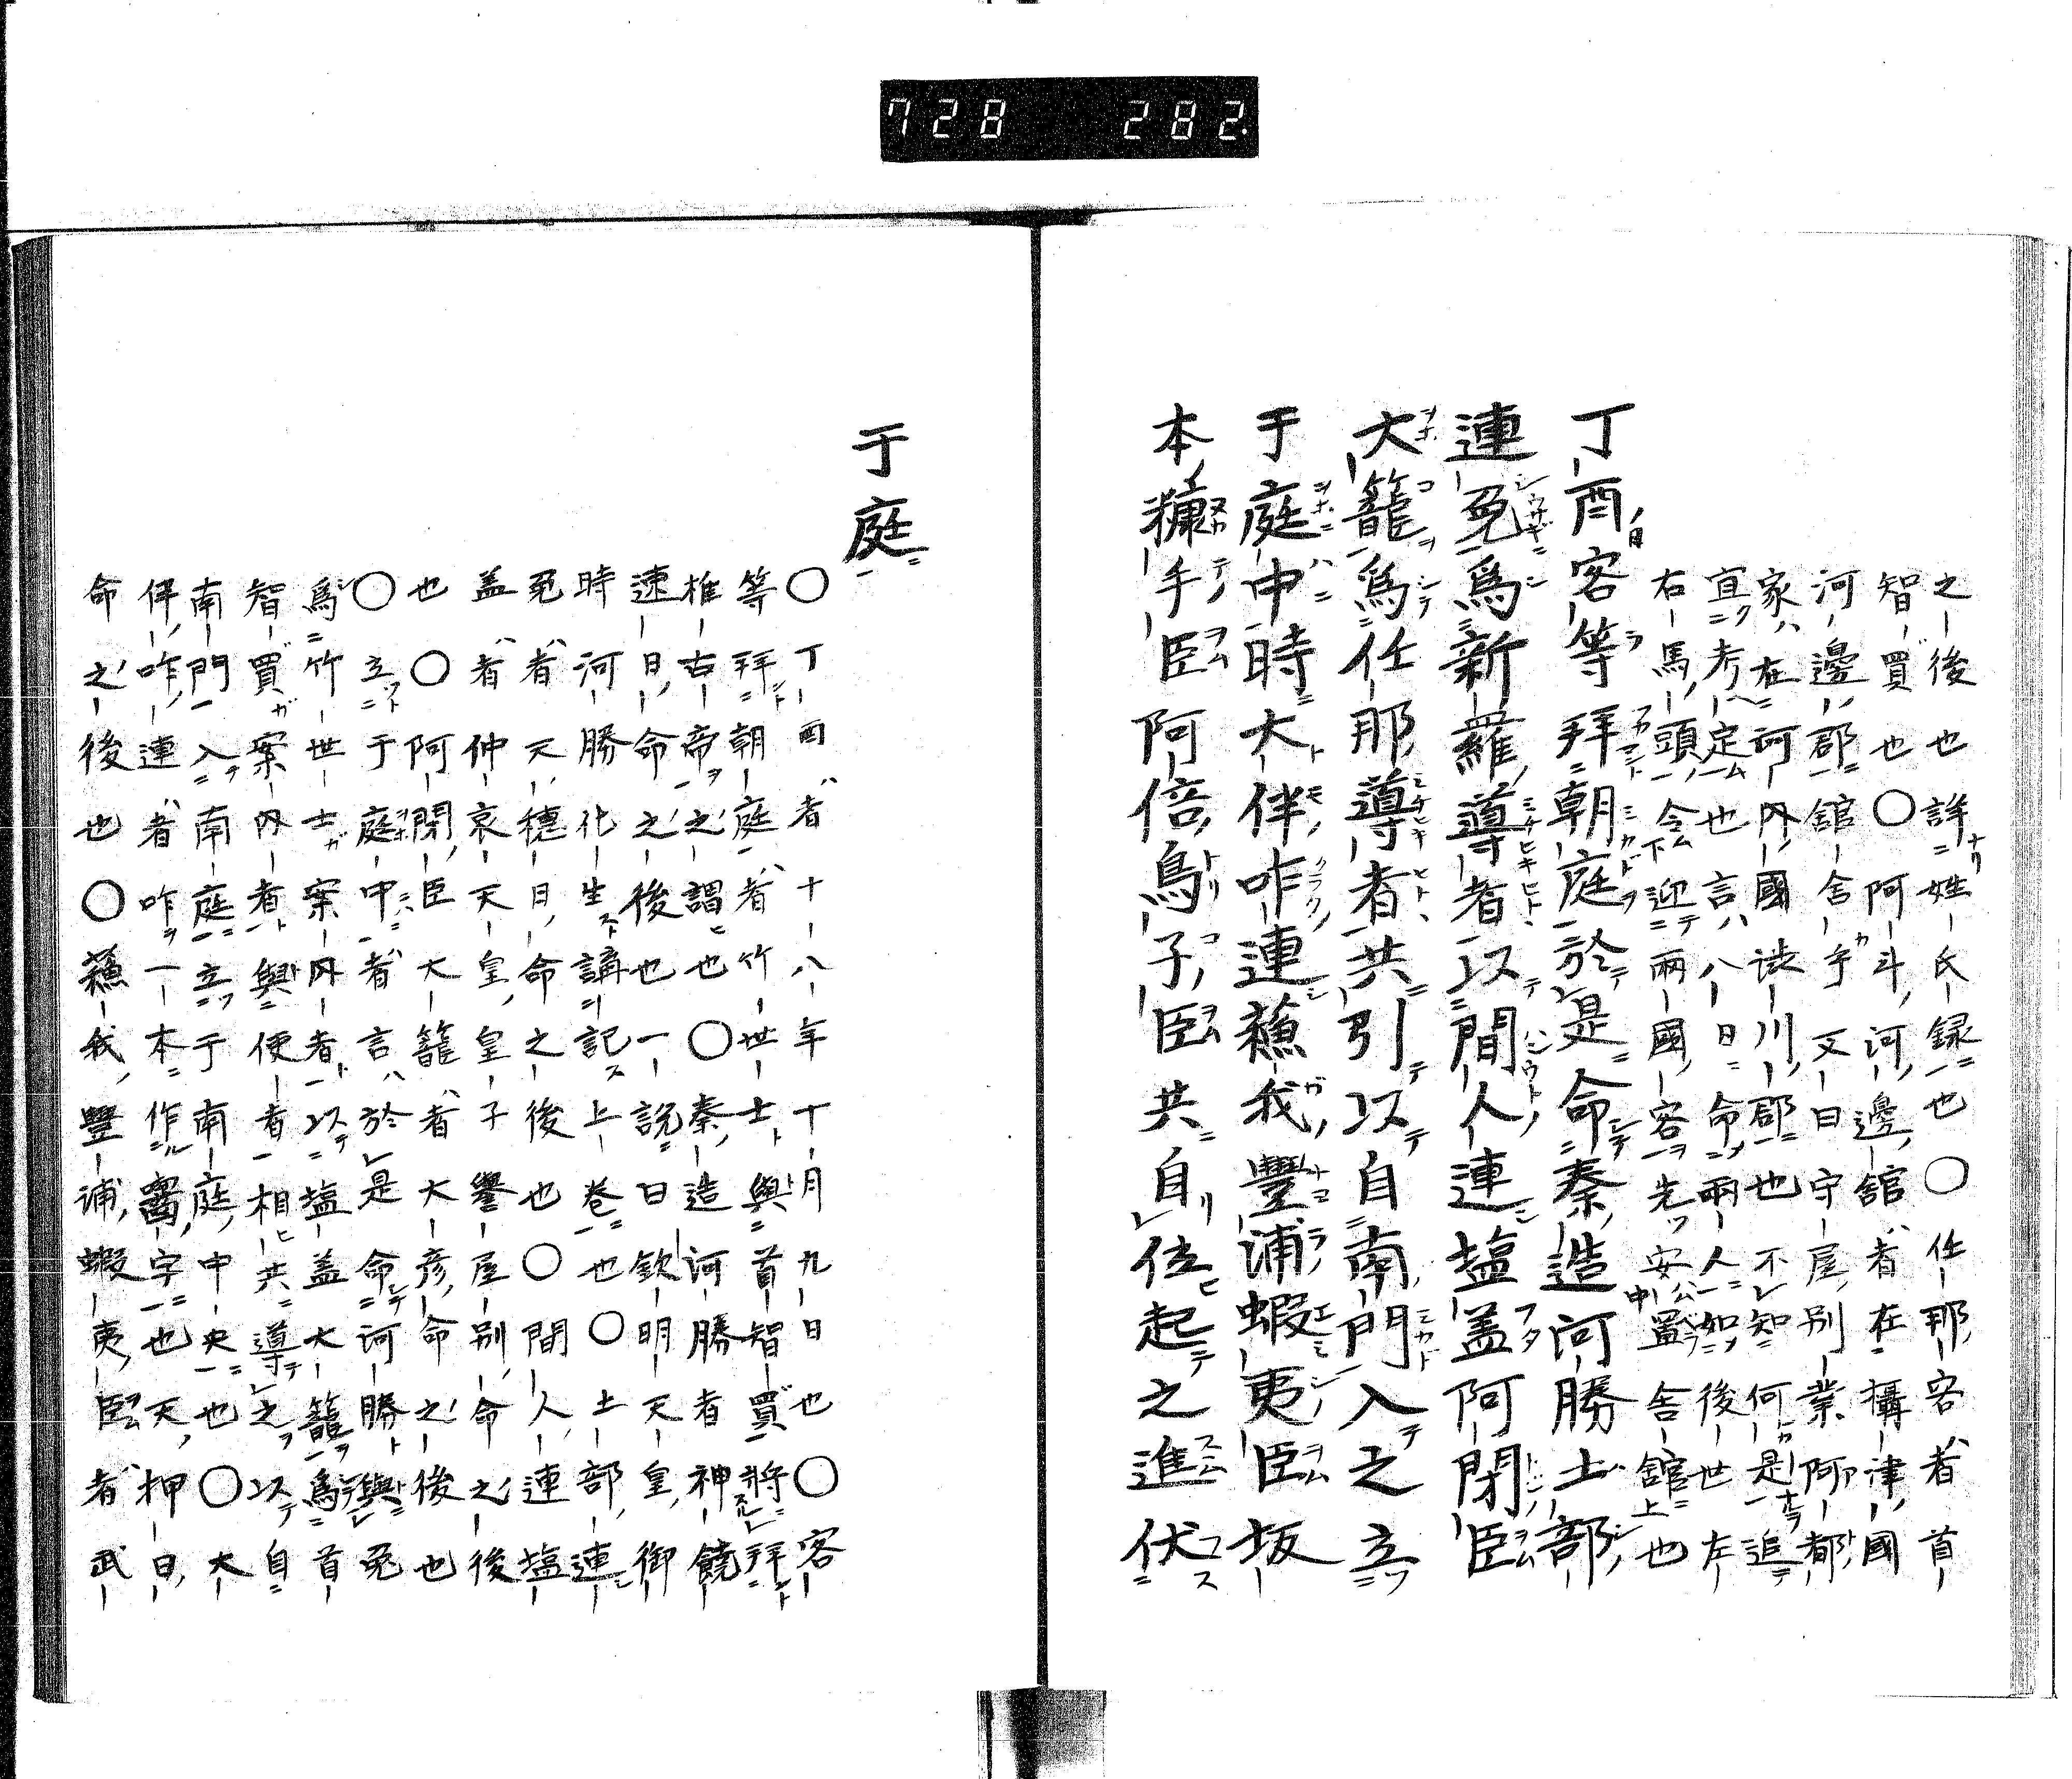 728 282
之後也詳姓氏録也〇任那客者首
智買也〇阿斗河邊舘者在攝津國
河邊郡舘舎乎又曰守屋別業阿都
家在河内國渋川郡也不知何是追
宜考定也言八日命兩人如後世左
右馬頭令迎兩國客先安置舎舘也
丁酉客等拜朝庭於是命秦造河勝土部
連莵爲新羅導者以間人連塩盖阿閇臣
大籠爲任那導者共引以自南門入之立
于庭中時大伴咋連蘓我豐浦蝦夷臣坂
本糠手臣阿倍鳥子臣共自位起之進伏
于庭
〇丁酉者十八年十月九日也〇客
等拜朝庭者竹世士與首智買將拜
推古帝之謂也〇秦造河勝者神饒
速日命之後也一説曰欽明天皇御
時河勝化生講記上巻也〇土部連
莵者天穂日命之後也〇間人連塩
盖者仲哀天皇皇子譽屋別命之後
也〇阿閇臣大籠者大彦命之後也
〇立于庭中者言於是命河勝與莵
爲竹世士案内者以塩盖大籠爲首
智買案内者與使者相共導之以自
南門入南庭立于南庭中央也〇大
伴咋連者咋一本作囓字也天押日
命之後也〇蘓我豐浦蝦夷臣者武